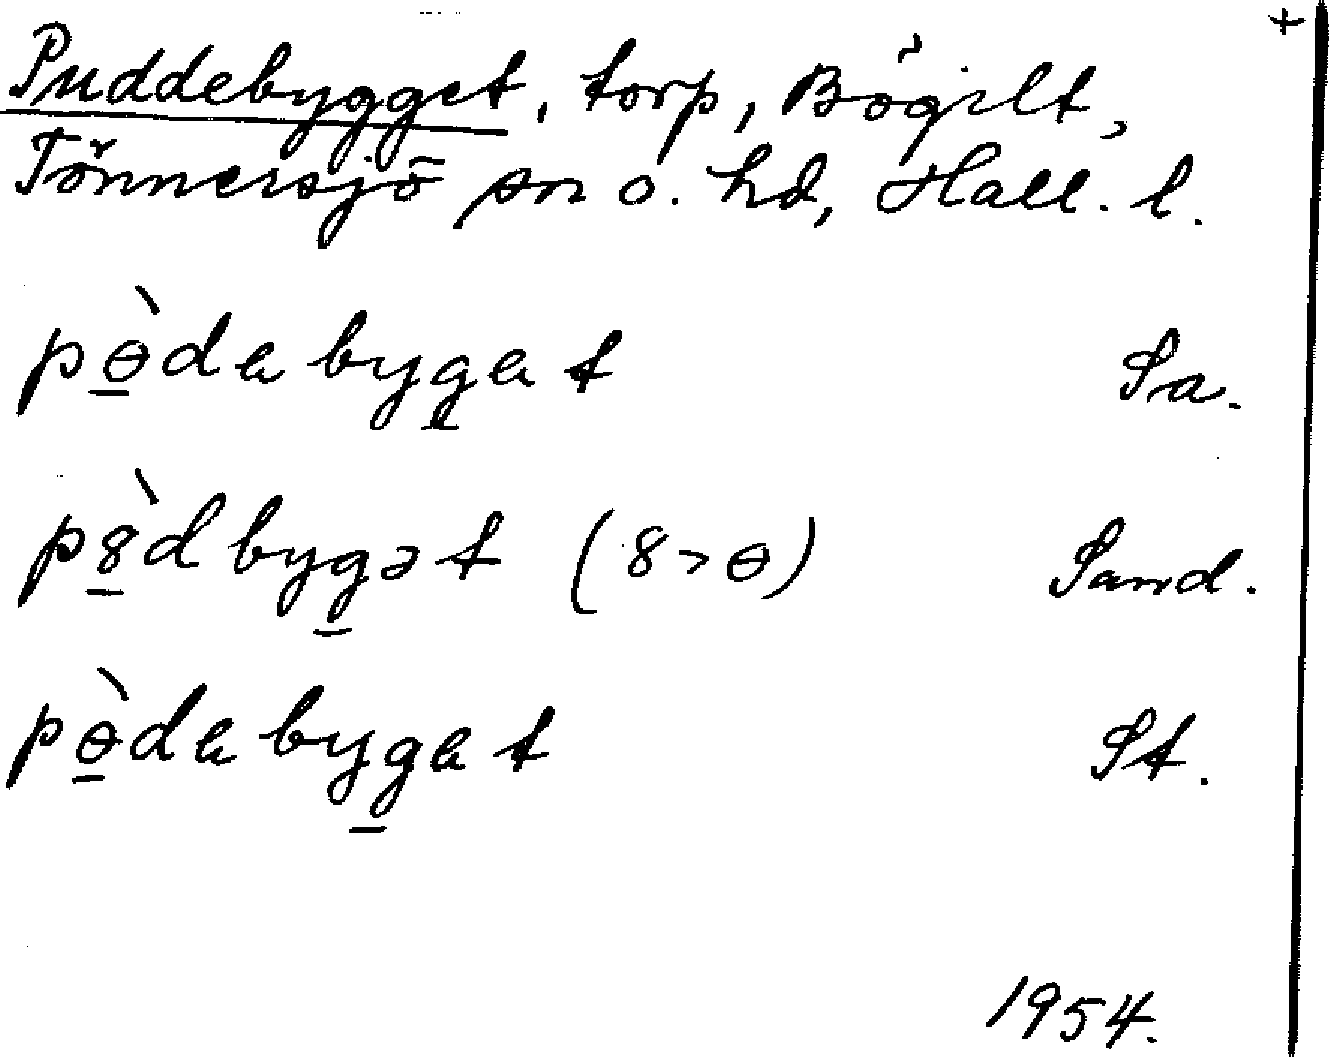 +
Puddebygget, torp, Bögilt,
Tönnersjö sn o. hd, Hall. l.
pɵ̠̀dabyg̠at Sa.
p8̠̀dbyg̠ət (8>ɵ) Sand.
pɵ̠̀dabyg̠at St.
1954.